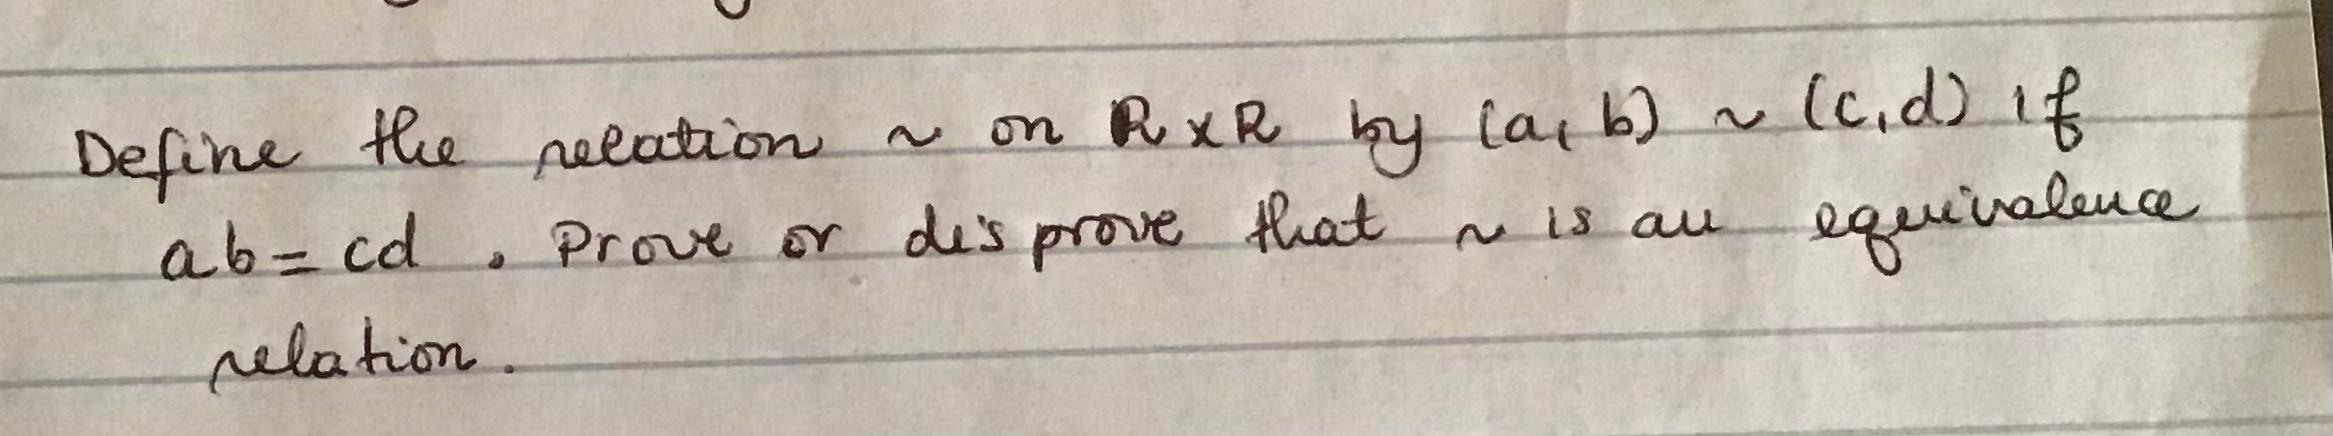 Define the relation ~ on R x R by (a, b) ~ (c, d) if
ab = cd . Prove or disprove that ~ is an equivalence
relation.